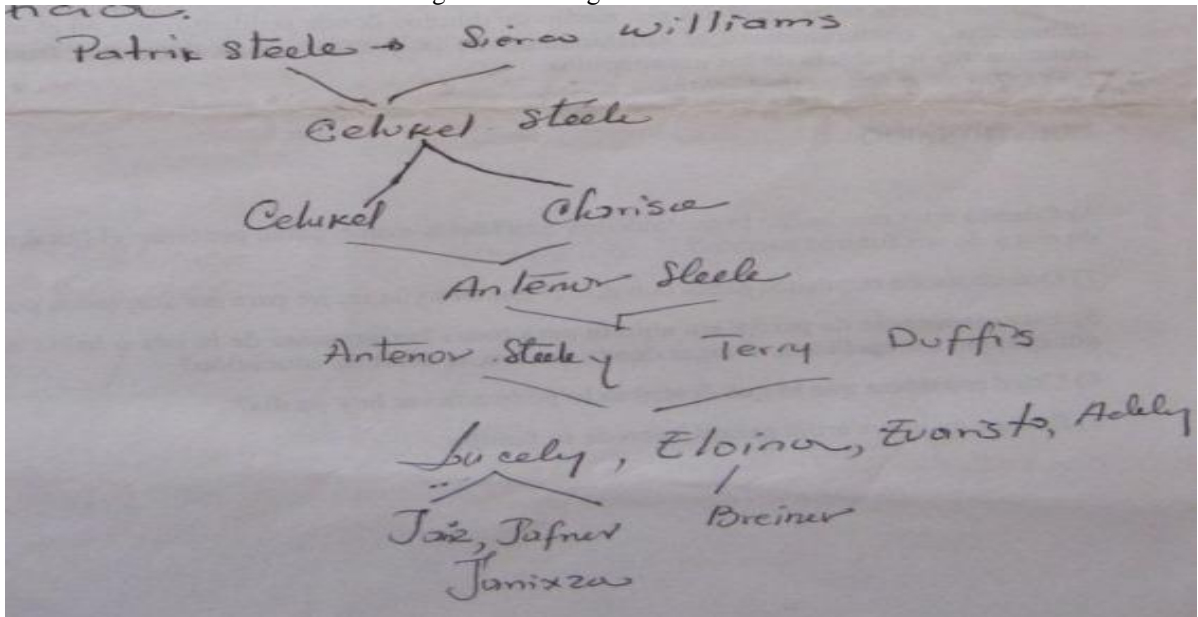 Patrik Steele → Sierea Williams
Celukel Steele
Celukel Clorisa
Antenor Steele
Antenor Steele y Terry Duffis
Lucely, Eloina, Evaristo, Adely
Jaiz, Jafner Breiner
Janixza